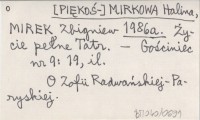 [PIĘKOŚ-]MIRKOWA Halina,
MIREK Zbigniew 1986a. Ży-
cie pełne Tatr. – Gościniec
nr 9: 19, il.
O Zofii Radwańskiej-Pa-
ryskiej.